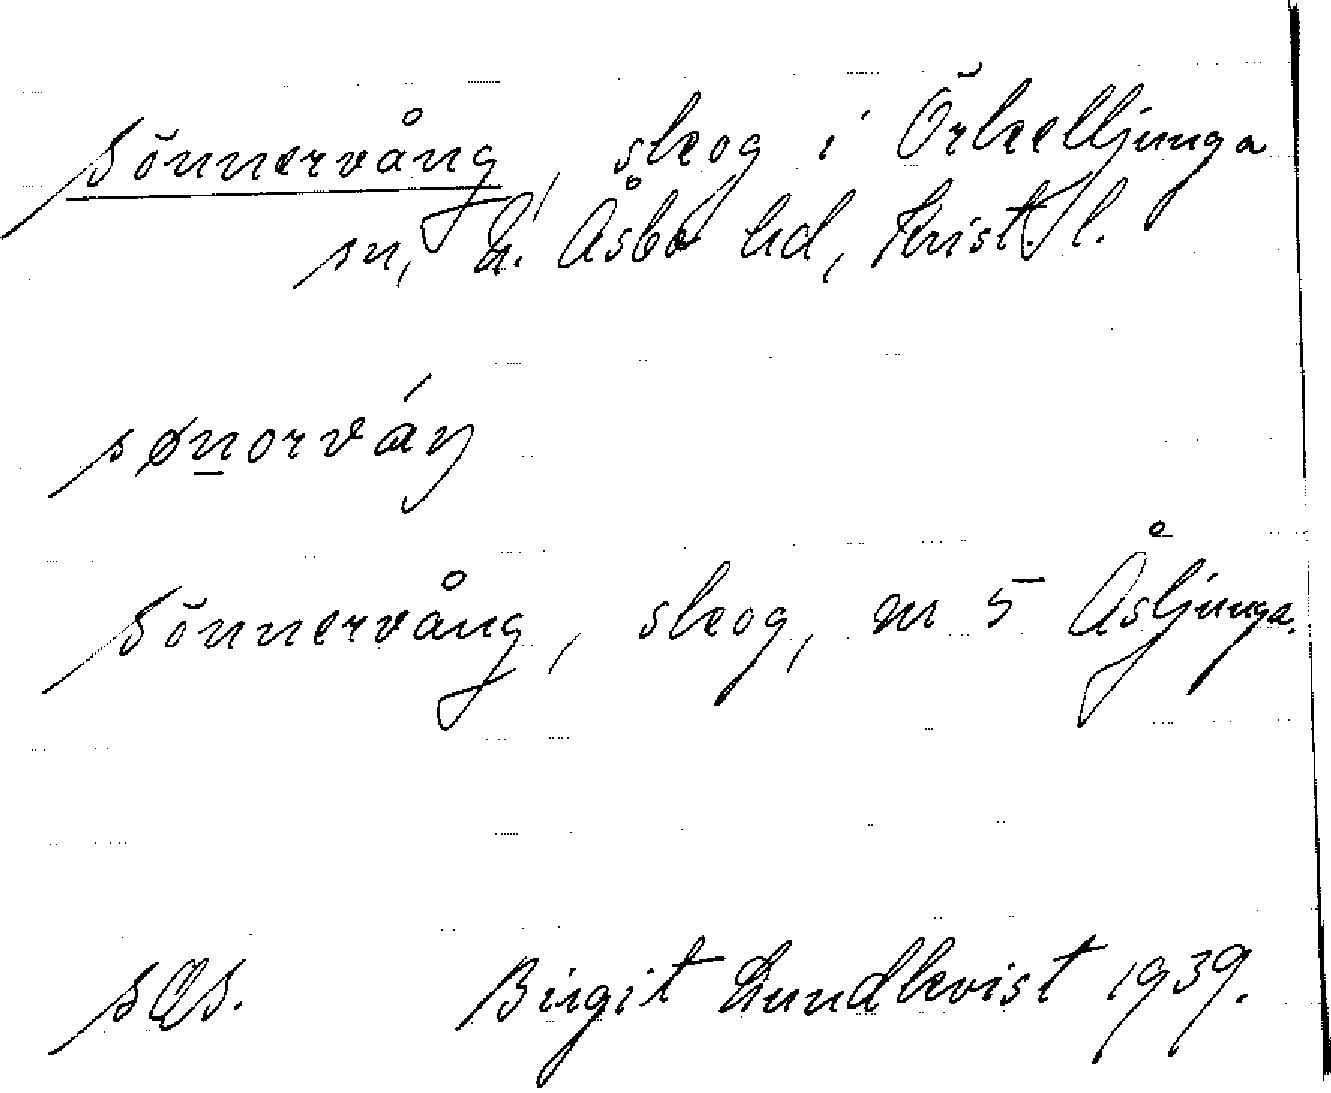 Sönnervång, skog i Örkelljunga
sn, N. Åsbo hd, Krist. l.
sønorváŋ
Sönnervång, skog, nr 5 Åsljunga.
Birgit Lundkvist 1939.